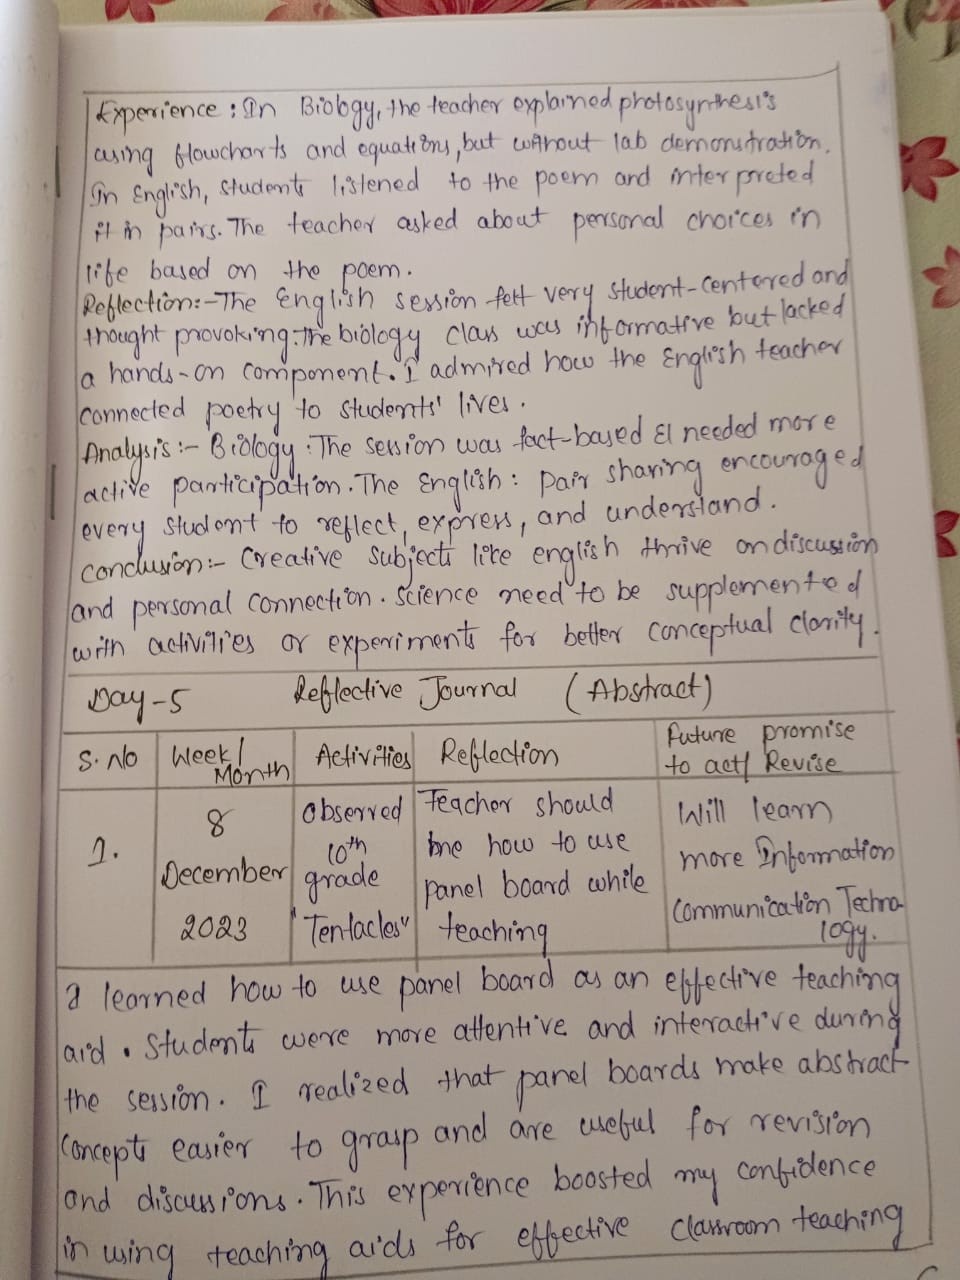 Experience : In Biology, the teacher explained photosynthesis
using flowcharts and equations, but without lab demonstration.
In English, students listened to the poem and interpreted
it in pairs. The teacher asked about personal choices in
life based on the poem.
Reflection:- The English session felt very student-centered and
thought provoking. The biology class was informative but lacked
a hands-on component. I admired how the English teacher
connected poetry to students' lives.
Analysis :- Biology : The session was fact-based & needed more
active participation. The English : Pair sharing encouraged
every student to reflect, express, and understand.
conclusion :- Creative subjects like english thrive on discussion
and personal connection. Science need to be supplemented
with activities or experiments for better conceptual clarity.
Day-5 Reflective Journal (Abstract)
S.No Week/ Month Activities Reflection Future promise to act/ Revise
1. 8 December 2023
Observed
10th
grade
"Tentacles"
Teacher should
how to use
panel board while
teaching
Will learn
more Information
Communication Techno-
logy.
I learned how to use panel board as an effective teaching
aid. Students were more attentive and interactive during
the session. I realized that panel boards make abstract
concepts easier to grasp and are useful for revision
and discussions. This experience boosted my confidence
in using teaching aids for effective classroom teaching